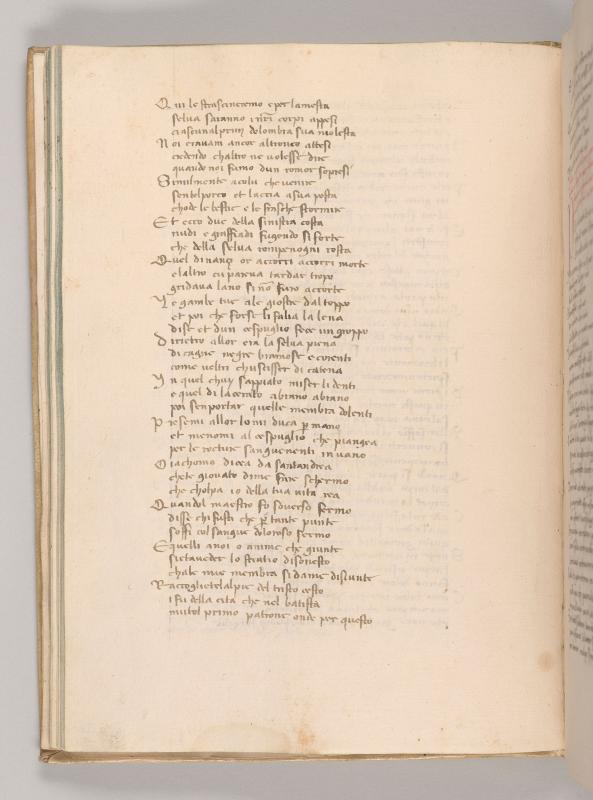 Q ui le strascineremo e per la mesta
selva saranno i nrĩ corpi appesi
ciascun al prun delombra sua molesta
N oi eravam ancor altronco attesi
credendo chaltro ne volesse dire
quando noi fumo dun romor sopresi
S imilmente acolui che venire
sentelporco et la caccia asua posta
chode le bestie e le frasche stormire
Et ecco due della sinistra costa
nudi e graffiadi fugendo si forte
che della selva rompenogni rosta
Q uel dinançi or accorri accorri morte
elaltro cui parea tardar tropo
gridava lano si nõ furo accorte
L e gambe tue ale giostre dal toppo
et poi che forse li falia la lena
di se et dun cespuglio fece un groppo
D irietro allor era la selva piena
di cagne negre bramose e corenti
come veltri chuscisser di catena
I n quel chuy sappiato miser li denti
e quel dilacerato abrano abrano
poi senportar quelle membra dolenti
P resemi allor lo mi duca p mano
et menomi al cespuglio che piangea
per le rocture sanguenenti in vano
O iachomo dicea da santandrea
chete giovato dime fare schermo
che cholpa io della tua vita rea
Q uandol maestro fo sovresso fermo
disse chi fusti che p tante punte
soffi col sangue doloroso sermo
E quelli anoi o anime che giunte
siet avedet lo stratio disonesto
chale mie membra si da me disiunte
R accoglietelalpie del tristo cesto
i fu della cita che nel batista
mutol primo patrone onde per questo